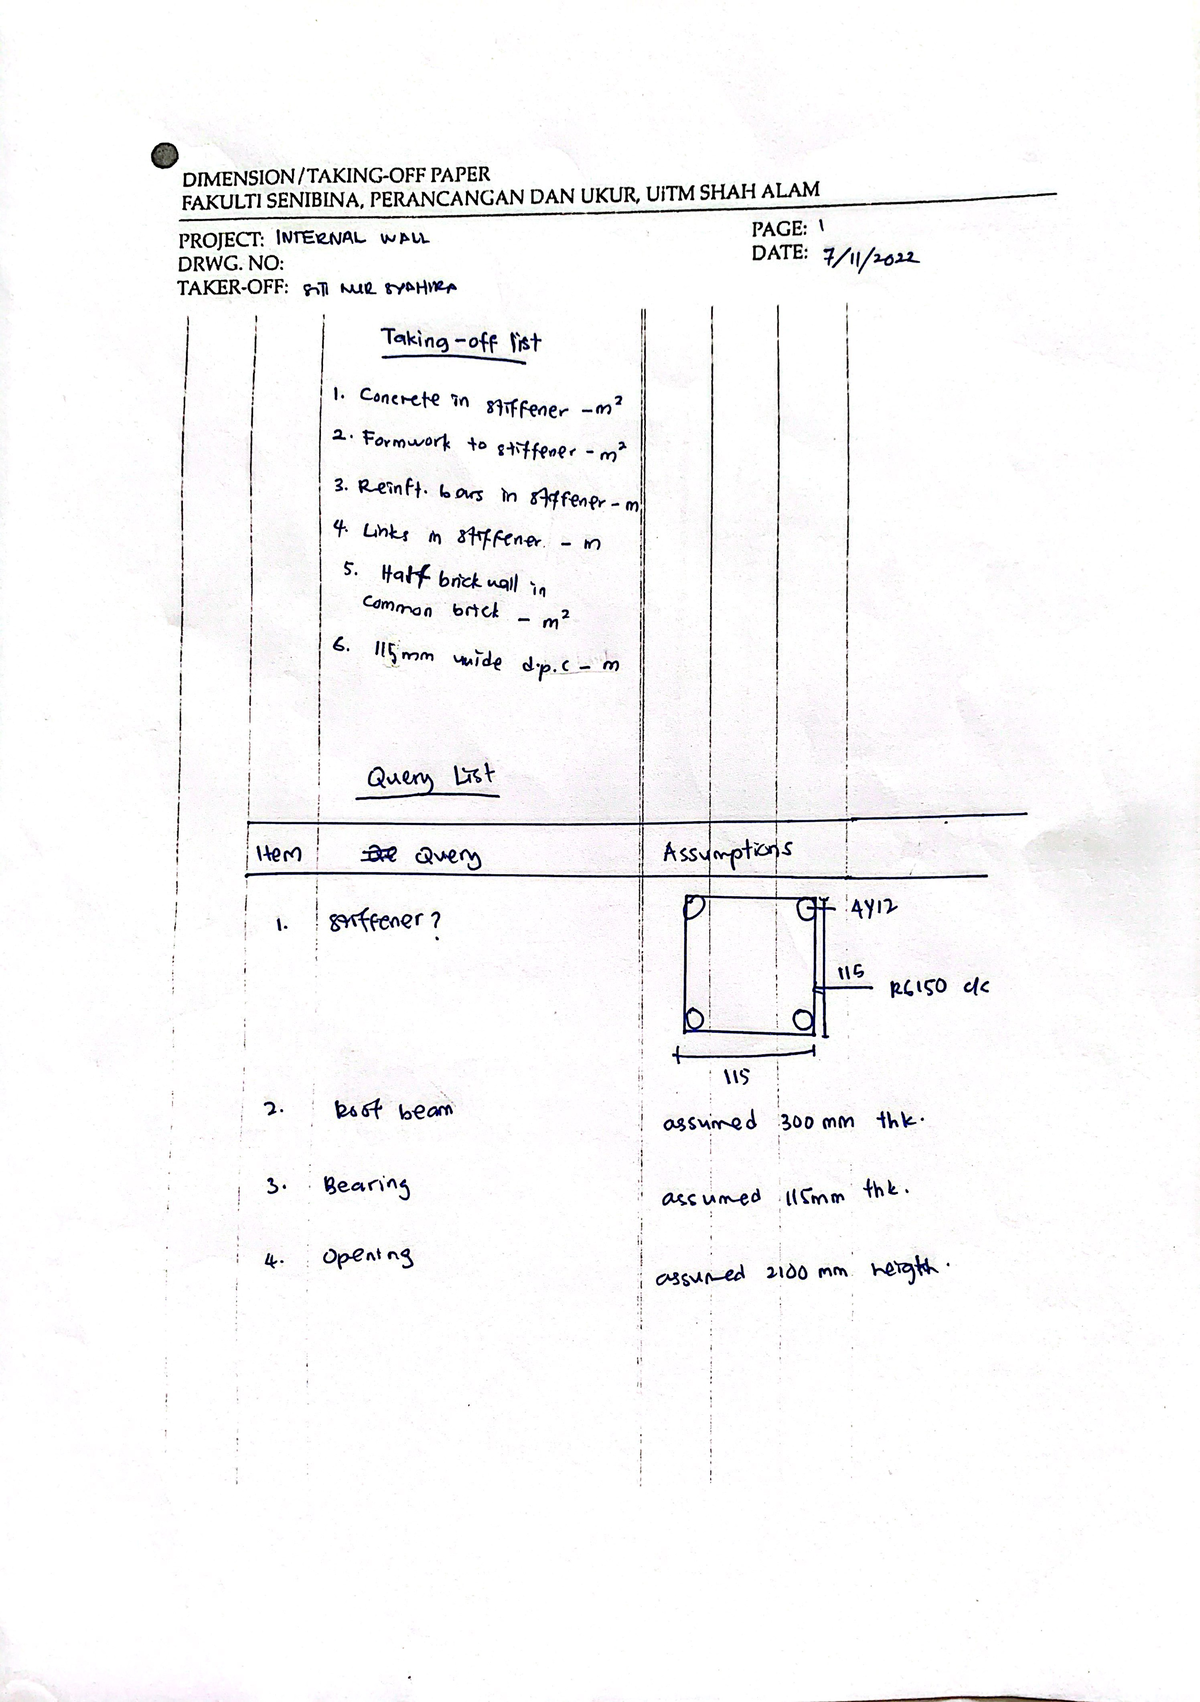 DIMENSION/TAKING-OFF PAPER
FAKULTI SENIBINA, PERANCANGAN DAN UKUR, UiTM SHAH ALAM
PROJECT: INTERNAL WALL
DRWG. NO:
TAKER-OFF: SITI NUR SYAHIRA
PAGE: 1
DATE: 7/11/2022
Taking-off list
1. Concrete in stiffener - m²
2. Formwork to stiffener - m²
3. Reinft. bars in stiffener - m
4. Links in stiffener. - m
5. Half brick wall in
common brick - m²
6. 115mm wide d.p.c - m
Query List
Item Query Assumptions
1. Stiffener?
4Y12
115
R6150 c/c
115
2. Roof beam assumed 300 mm thk.
3. Bearing assumed 115mm thk.
4. Opening assumed 2100 mm heigth.